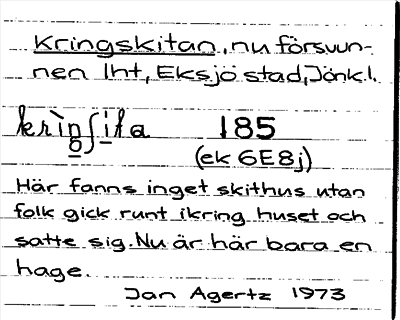 Kringskitan, nu försvun-
nen lht, Eksjö stad, Jönk.l.
185
(ek 6E8j)
Här fanns inget skithus utan
folk gick runt ikring huset och
satte sig. Nu är här bara en
hage.
Jan Agertz 1973